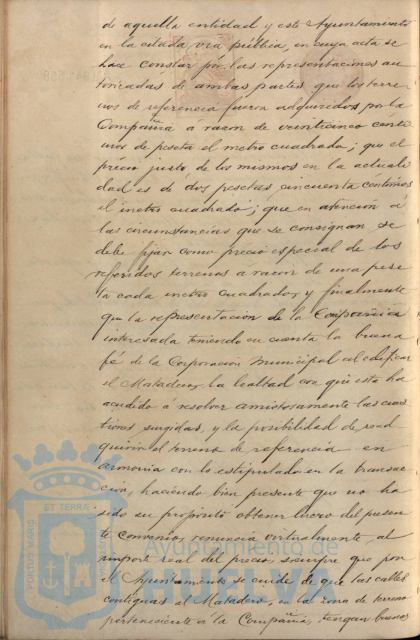 de aquella entidad y este Ayuntamiento
en la citada vía pública, en cuya acta se
hace constar por las representaciones au
torizadas de ambas partes que los terre
nos de referencia fueron adquiridos por la
Compañía á razon de veinticinco centi
mos de peseta el metro cuadrado; que el
précio justo de los mismos en la actuali
dad es de dos pesetas cincuenta centimos
el metro cuadrado; que en atencion á
las circunstancias que se consignan se
debe fijar como precio especial de los
referidos terrenos a razon de una pese
ta cada metro cuadrado, y finalmente
que la representacion de la Compañia
interesada teniendo en cuenta la buena
fé de la Corporacion Municipal al edificar
el Matadero, la lealtad con que esta ha
acudido á resolver amistosamente las cues
tiones surgidas, y la posibilidad de
quirir el terreno de referencia en
armonia con lo estipulado en la transac
cion, haciendo bien presente que no ha
sido su propósito obtener lucro del presen
te convenio, renuncia virtualmente, al
importe real del precio, siempre que por
el Ayuntamiento se cuide de que las calles
contiguas al Matadero, en la zona de terreno
perteneciente a la Compañia, tengan buenas
PORTUS MARIS ET TERRAE
Ayuntamiento de
HUELVA